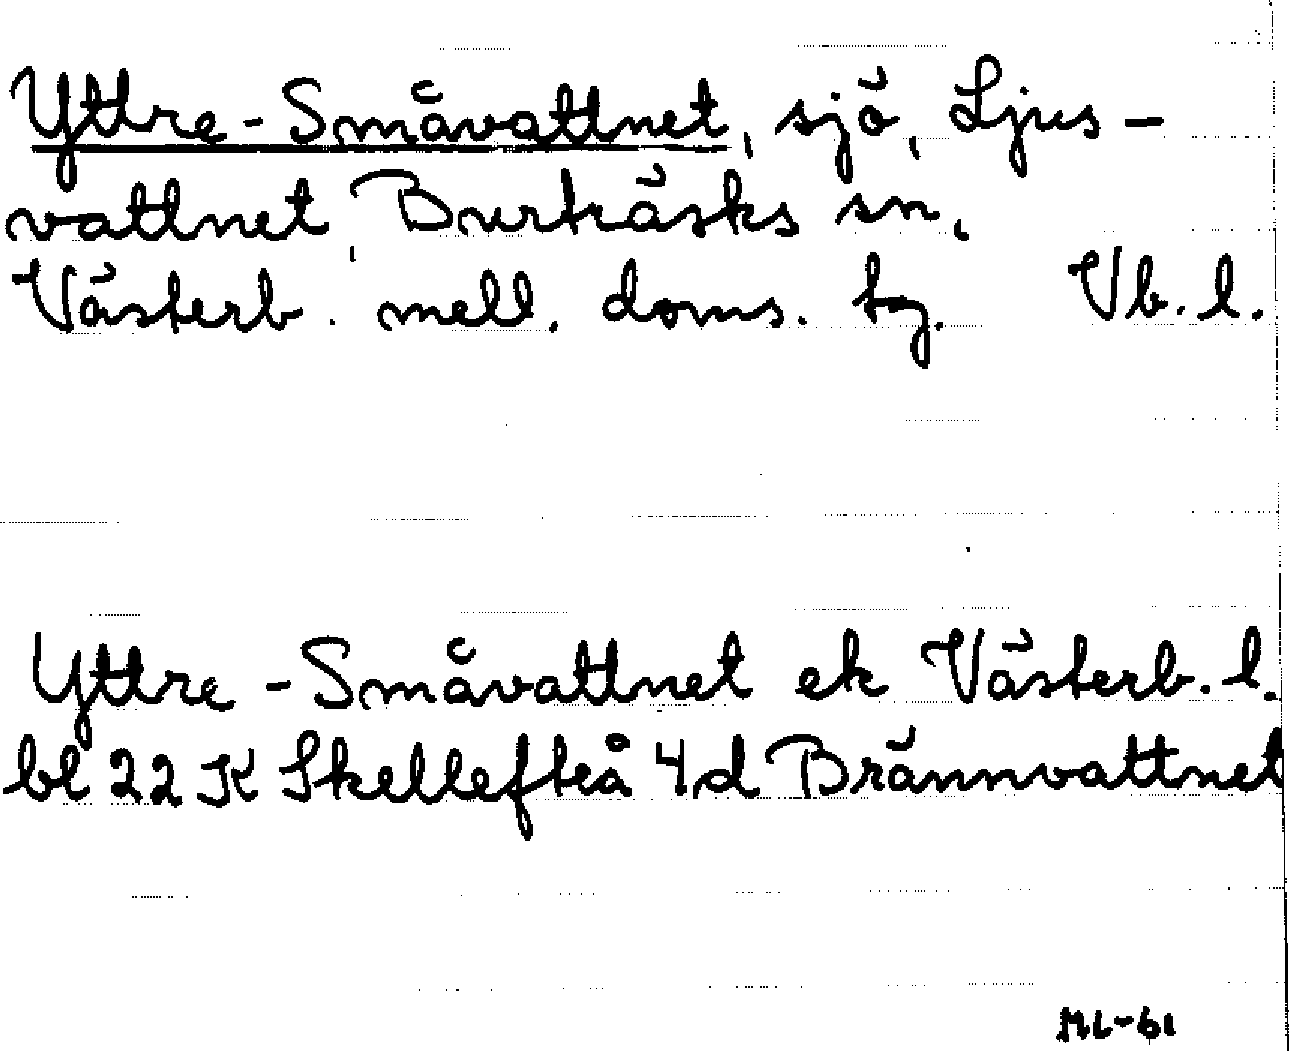 Yttre-Småvattnet, sjö, Ljus-
vattnet, Burträsks sn,
Västerb. mell. doms. tg. Vb. l.
Yttre-Småvattnet ek Västerb. l.
bl 22 K Skellefteå 4d Brännvattnet
ML-61